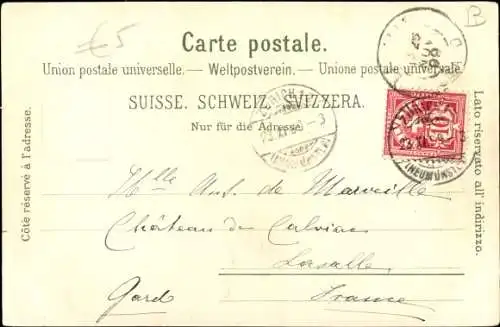 £5
B
Carte postale.
Union postale universelle. — Weltpostverein. — Unione postale universale.
SUISSE. SCHWEIZ. SVIZZERA.
Nur für die Adresse.
Côté réservé à l'adresse.
Lato riservato all' indirizzo.
ZÜRICH
10
(NEUMÜNST
Mlle Ant. de Marveille
Château de Calviac
Lasalle
Gard France